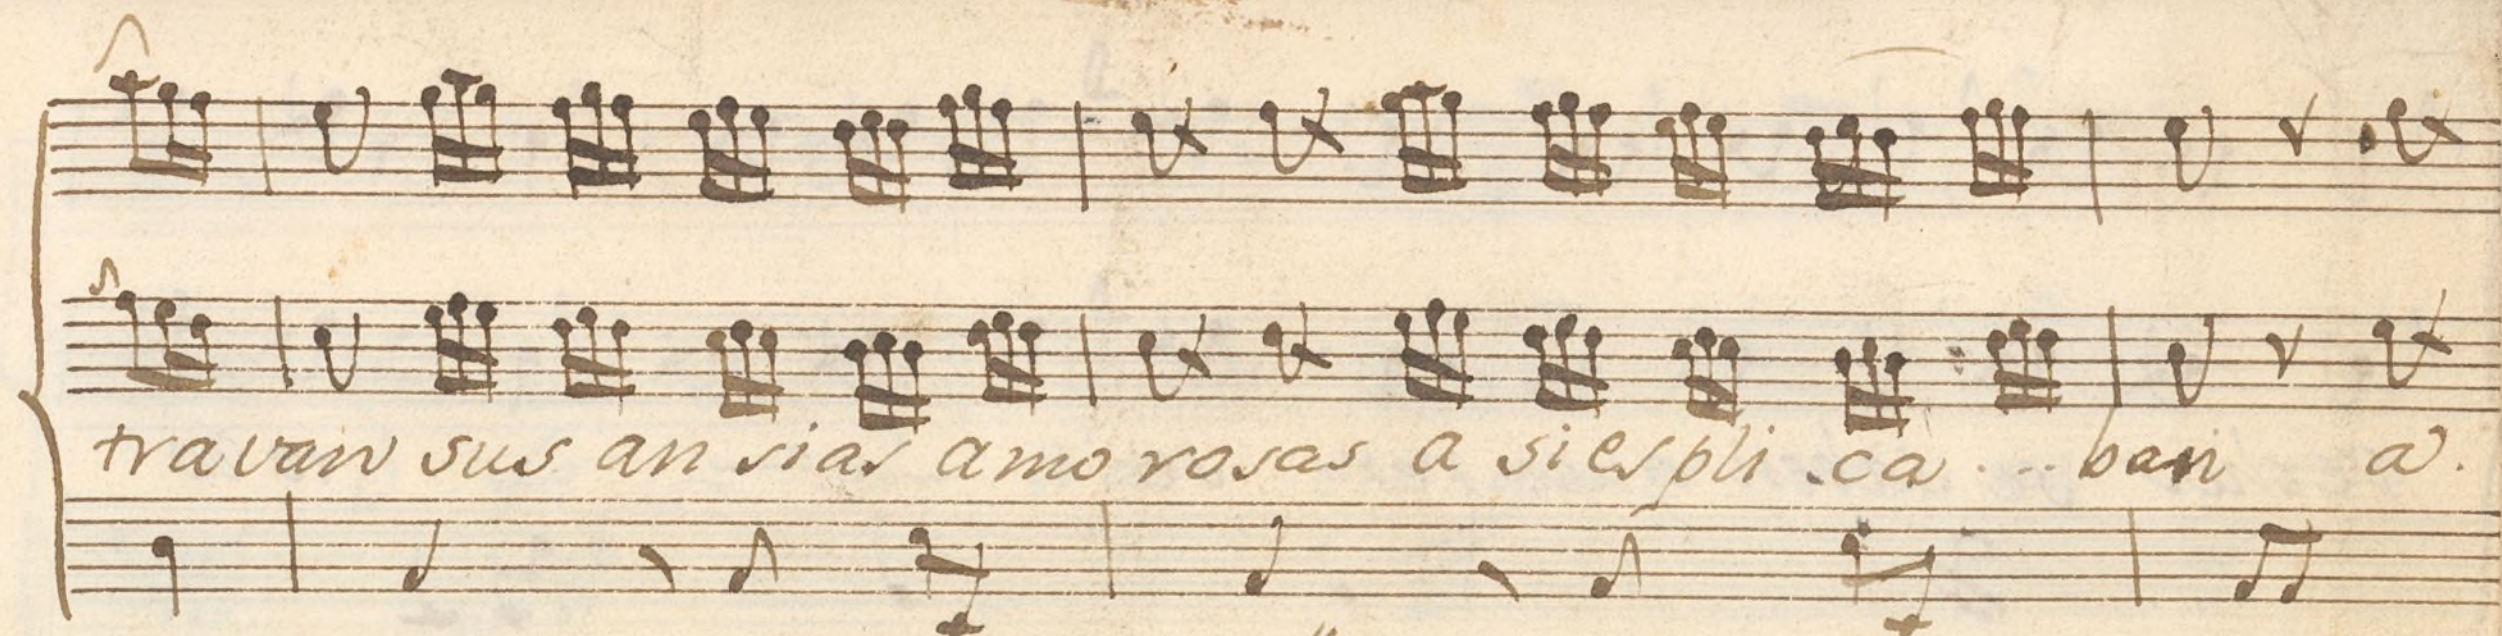 travan sus an sias amo rosas a si espli .ca ... ban a.